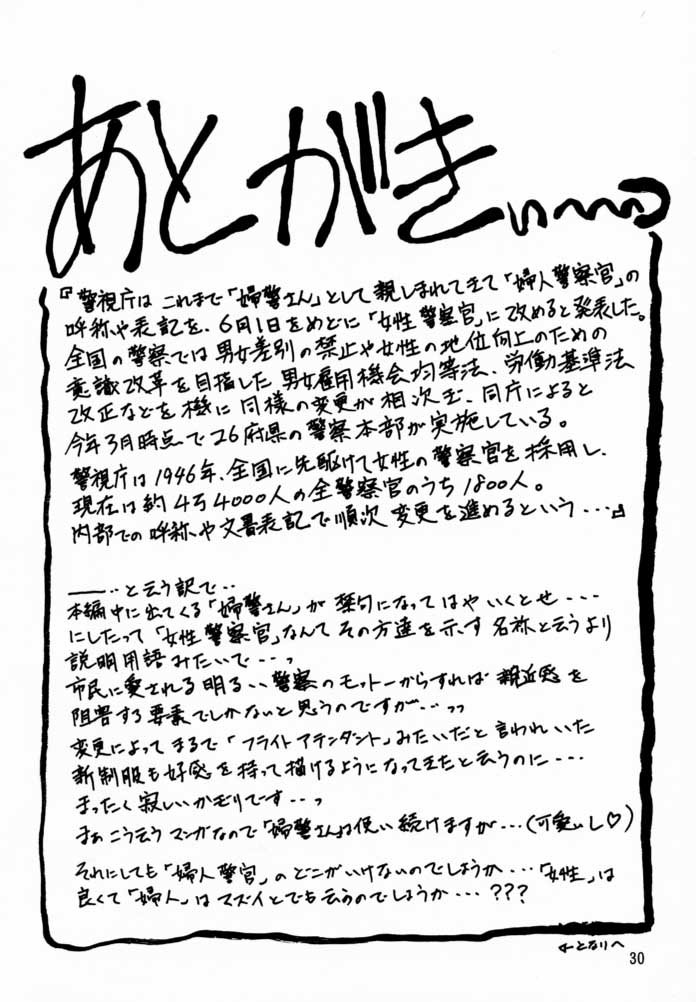 あとがきぃ〜〜ぃっ
『警視庁は これまで「婦警さん」として親しまれてきた「婦人警察官」の
呼称や表記を、6月1日をめどに「女性警察官」に改めると発表した。
全国の警察では男女差別の禁止や女性の地位向上のための
意識改革を目指した男女雇用機会均等法、労働基準法
改正などを機に同様の変更が相次ぎ、同庁によると
今年3月時点で26府県の警察本部が実施している。
警視庁は1946年、全国に先駆けて女性の警察官を採用し、
現在は約4万4000人の全警察官のうち1800人。
内部での呼称や文書表記で順次変更を進めるという・・・』
――‥と云う訳で‥
本編中に出てくる「婦警さん」が禁句になってはやいくとせ・・・
にしたって「女性警察官」なんてその方達を示す名称と云うより
説明用語みたいで・・・っ
市民に愛される明るい警察のモットーからすれば親近感を
阻害する要素でしかないと思うのですが・・・っっ
変更によってまるで「フライトアテンダント」みたいだと言われていた
新制服も好感を持って描けるようになってきたと云うのに・・・
まったく寂しいかぎりです・・・っ
まぁこう云うマンガなので「婦警さん」は使い続けますが・・・(可愛いし♡)
それにしても「婦人警官」のどこがいけないのでしょうか・・・「女性」は
良くて「婦人」はマズイとでも云うのでしょうか・・・???
←となりへ
30